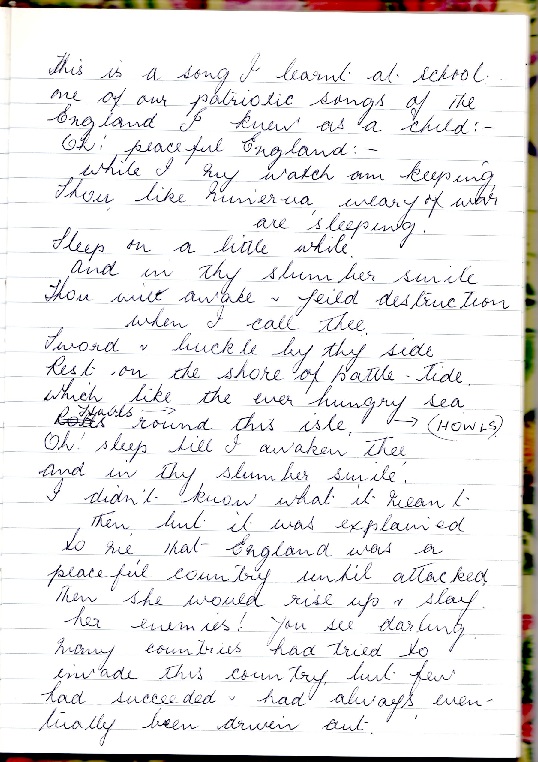 This is a song I learnt at school.
one of our patriotic songs of the
England I knew as a child:-
Oh! peaceful England:-
while I my watch am keeping
Thou, like Minerva, weary of war
are sleeping.
Sleep on a little while,
and in thy slumber smile
Thou wilt awake & feild destruction
when I call thee.
Sword & buckle by thy side
Rest on the shore of battle-tide.
which like the ever hungry sea
Howls
round this isle. → (HOWLS)
Oh! sleep till I awaken thee
and in thy slumber smile.
I didn't know what it meant
then, but it was explained
to me that England was a
peaceful country until attacked,
then she would rise up & slay
her enemies! You see darling
many countries had tried to
invade this country, but few
had succeeded & had always even-
tually been driven out.